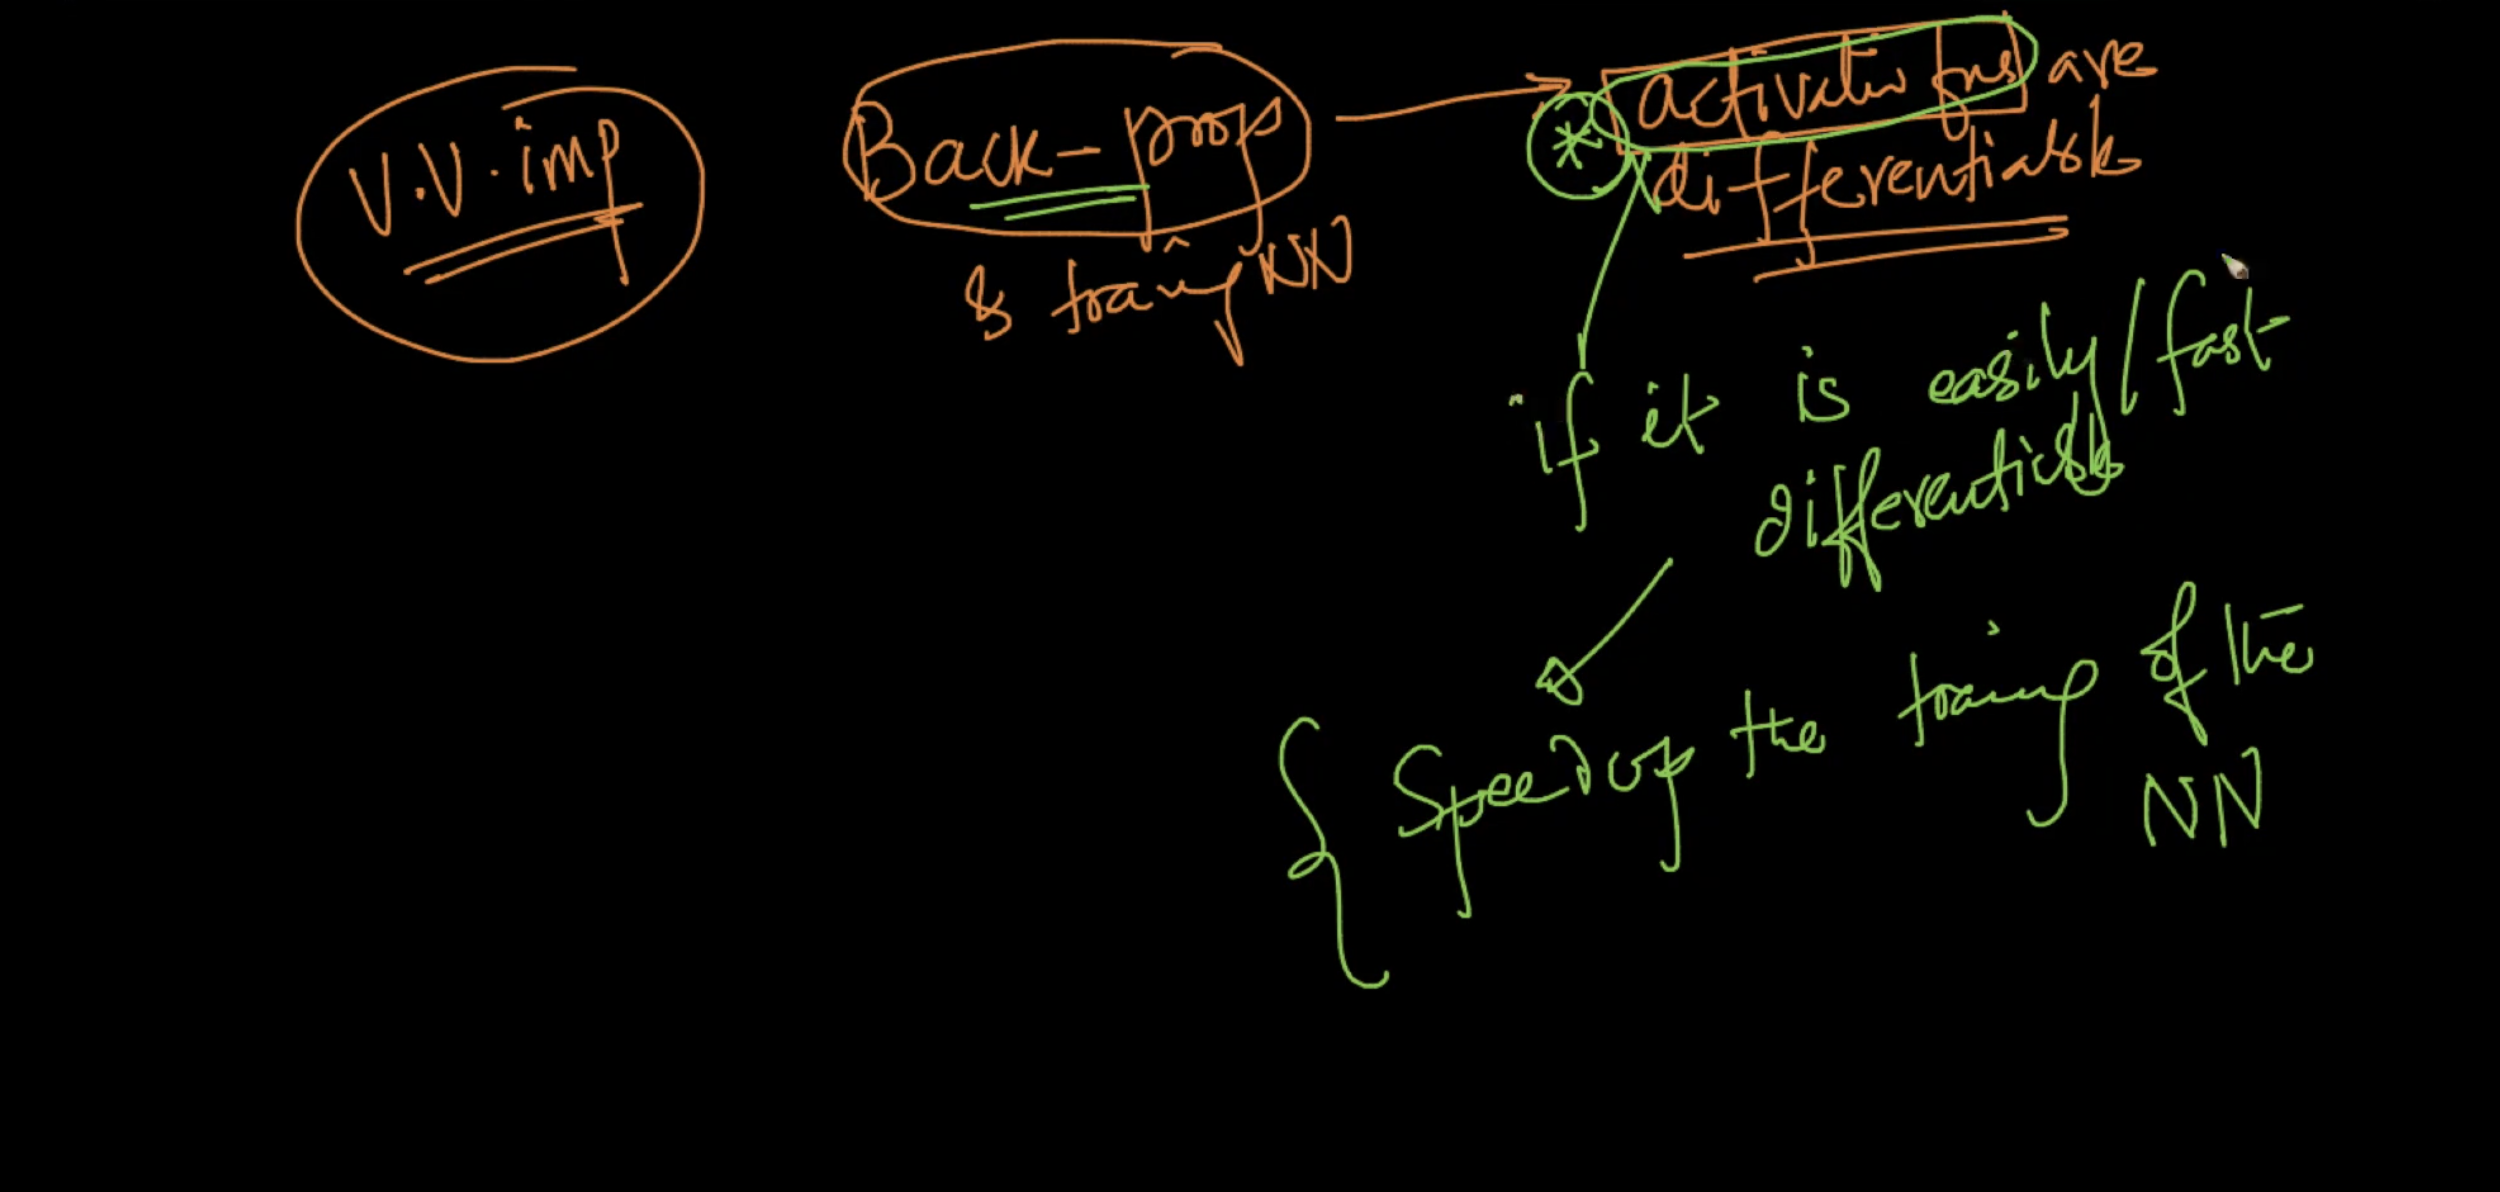 V.V.imp
Back-prop
& traing NN
activatin fns are
differentiable
* if it is easily/fast
differentiable
Speed up the traing of the
NN